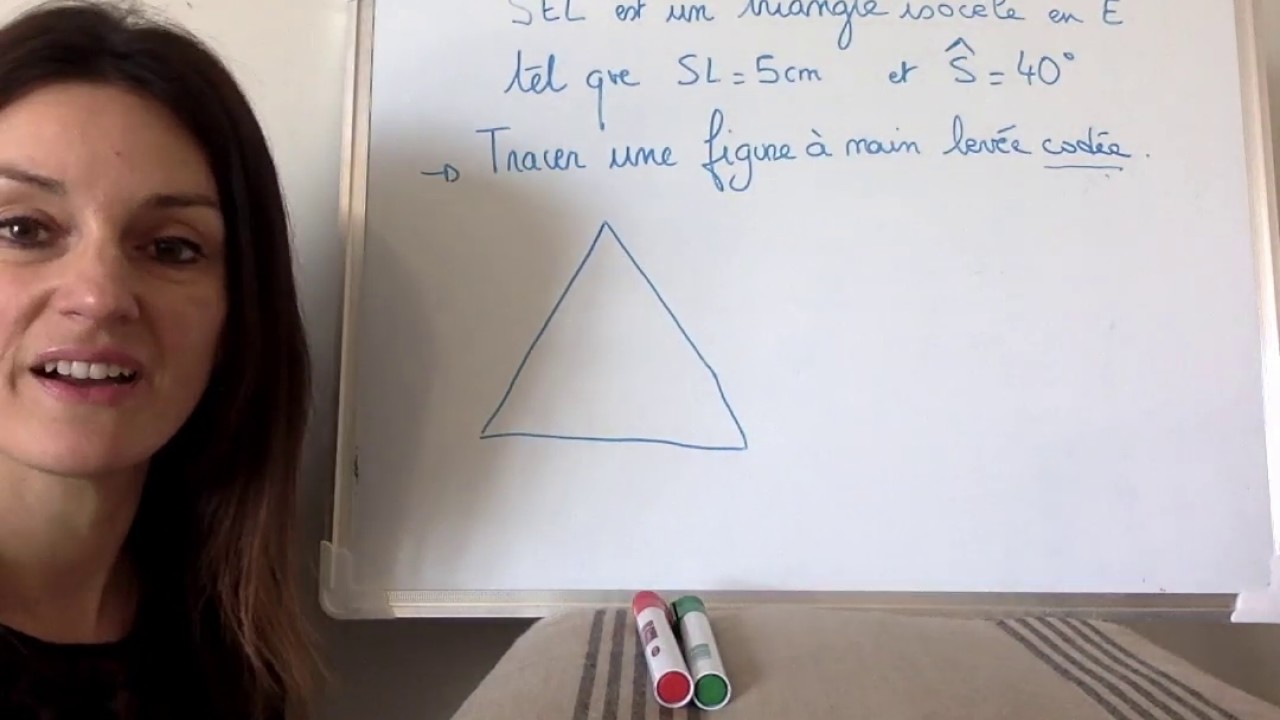 SEL est un triangle isocèle en E
tel que SL = 5cm et Ŝ = 40°
→ Tracer une figure à main levée codée.